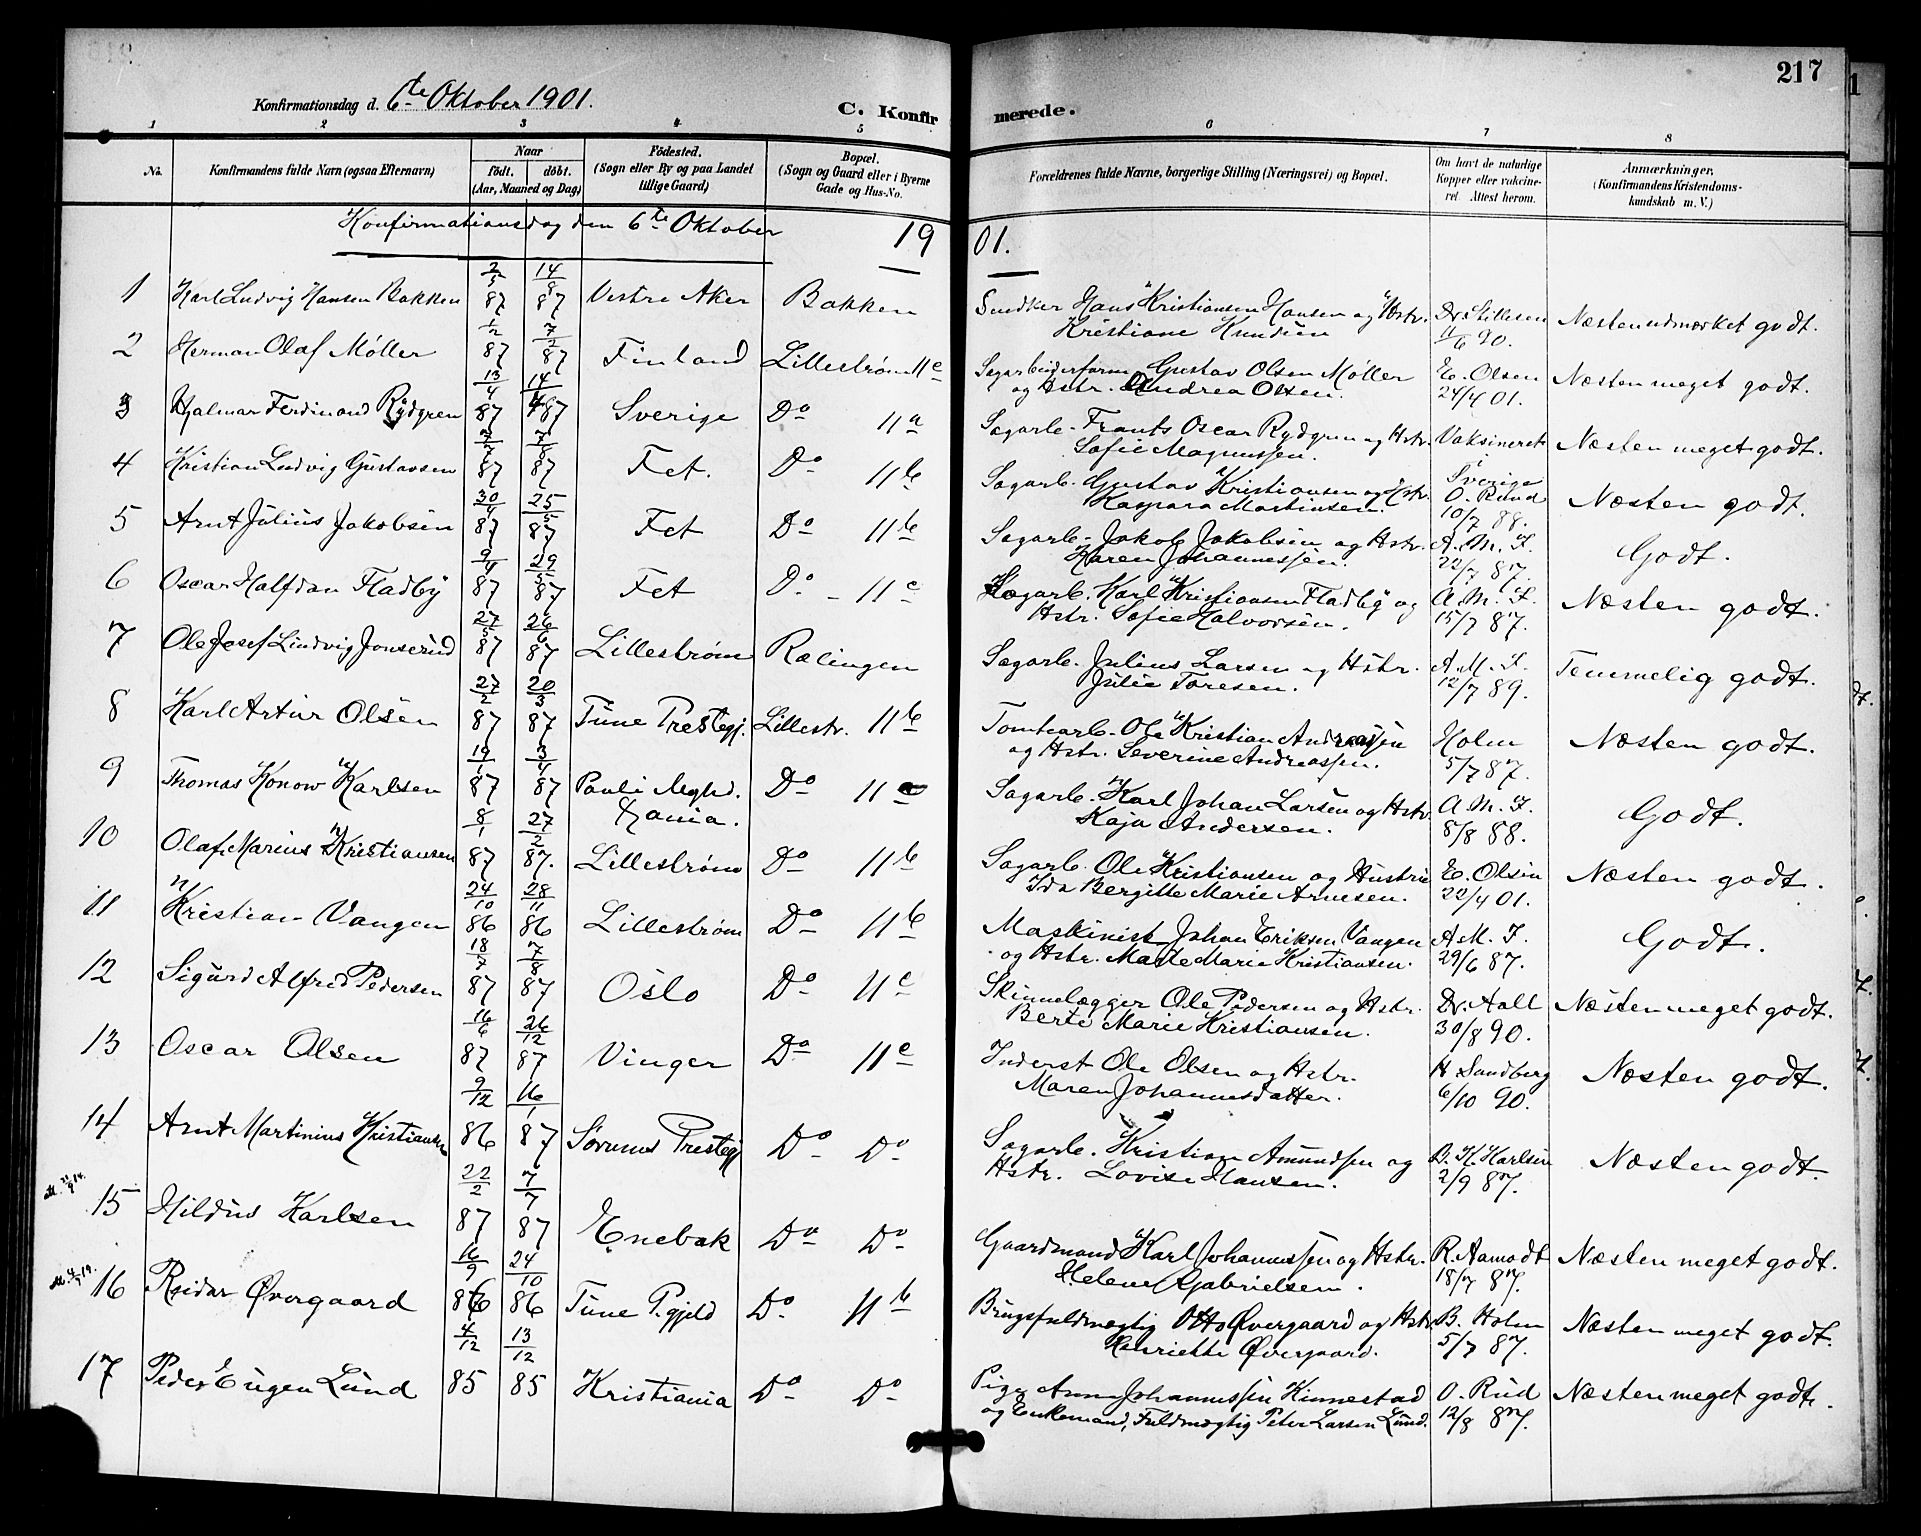 217
Konfirmationsdag d. 6te Oktober 1901.
C. Konfir merede.
1 2 3 4 5 6 7 8
No.
Konfirmandens fulde Navn (ogsaa Efternavn)
Naar
født. døbt.
(Aar, Maaned og Dag)
Fødested.
(Sogn eller By og paa Landet
tillige Gaard)
Bopæl.
(Sogn og Gaard eller i Byerne
Gade og Hus-No.
Forældrenes fulde Navne, borgerlige Stilling (Næringsvei) og Bopæl.
Om havt de naturlige
Kopper eller vakcine-
ret. Attest herom.
Anmærkninger.
(Konfirmandens Kristendoms-
kundskab m. V.)
Konfirmationsdag den 6te Oktober 19 01.
1 Karl Ludvig Hansen Bakken 2/5 87 14/8 87 Vestre Aker Bakken Smidker Hans Kristiansen Hansen og Hstr. Kristiane Knudsen Dr. Stillesen 11/6 90. Næsten udmærket godt.
2 Herman Olaf Møller 1/2 87 7/2 87 Finland Lillestrøm 11c Gustav Olsen Møller og Hstr. Andrea Olsen. E. Olsen 24/4 01. Næsten meget godt.
3 Hjalmar Ferdinand Rydgren 13/4 87 14/4 87 Sverige Do 11a Sagarb. Frants Oscar Rydgren og Hstr. Sofie Magnussen. Vaksineret Sverige Næsten meget godt.
4 Kristian Ludvig Gustavsen 87 7/8 87 Fet. Do 11b Sagarb. Gustav Kristiansen og Hstr. Kaspara Martinsen. O. Rund 10/7 88. Næsten godt.
5 Arnt Julius Jakobsen 30/4 87 25/5 87 Fet Do 11b Sagarb. Jakob Jakobsen og Hstr. Karen Johannessen. A. M. F. 22/7 87. Godt.
6 Oscar Halfdan Fladby 9/4 87 29/5 87 Fet Do - 11c Sagarb. Karl Kristiansen Fladby og Hstr. Sofie Halvorsen. A. M. F. 15/7 87. Næsten godt.
7 Ole Josef Lindvig Jonserud 27/5 87 26/6 87 Lillestrøm Rælingen Sagarb. Julius Larsen og Hstr. Julie Toresen. A. M. F. 12/7 89. Temmelig godt.
8 Karl Artur Olsen 27/2 87 20/3 87 Tune Prestegj. Lillestr. 11b Tomtearb. Ole Kristian Andreassen og Hstr. Severine Andreassen. Holm 5/7 87. Næsten godt.
9 Thomas Konow Karlsen 19/1 87 3/4 87 Pauli Mghd. Xania. Do 11a Sagarb. Karl Johan Larsen og Hstr. Kaja Andersen. A. M. F. 8/8 88. Godt.
10 Olaf Marius Kristiansen 8/1 87 27/2 87. Lillestrøm Do 11b Sagarb. Ole Kristiansen og Hustru Ida Bergitte Marie Arnesen. E. Olsen 22/4 01. Næsten godt.
11 Kristian Vangen 24/10 86 28/11 86 Lillestrøm Do 11b Maskinist Johan Eriksen Vangen og Hstr. Marte Marie Kristiansen. A. M. F. 29/6 87. Godt.
12 Sigurd Alfred Pedersen 18/7 87 7/8 87 Oslo Do 11c Skinnelægger Ole Pedersen og Hstr. Berte Marie Kristiansen. Dr. Aall 30/8 90. Næsten meget godt.
13 Oscar Olsen 16/6 87 26/12 87 Vinger Do 11c Inderst Ole Olsen og Hstr. Maren Johannesdatter. H Sandberg 6/10 90. Næsten godt.
14 Arnt Martinius Kristiansen 9/12 86 16/1 87 Sørums Prestegj Do Do Sagarb. Kristian Amundsen og Hstr. Lovise Hansen. B. K. Karlsen 2/9 87. Næsten godt.
15 Hildus Karlsen 22/2 87 7/7 87 Enebak Do Do Gaardmand Karl Johannessen og Hstr. Helene Gabrielsen. R. Aamodt 18/7 87. Næsten meget godt.
16 Reidar Øvergaard 16/9 86 24/10 86 Tune P.gjeld Do 11b Brugsfuldmægtig Otto Øvergaard og Hstr. Henriette Øvergaard. B. Holm 5/7 87. Næsten meget godt.
17 Peder Eugen Lund 4/12 85 13/12 85 Kristiania Do Do Pige Anna Johannessen Kinnestad og Enkemand, Fuldmægtig Peter Larsen Lund. O. Rud 12/8 87. Næsten meget godt.